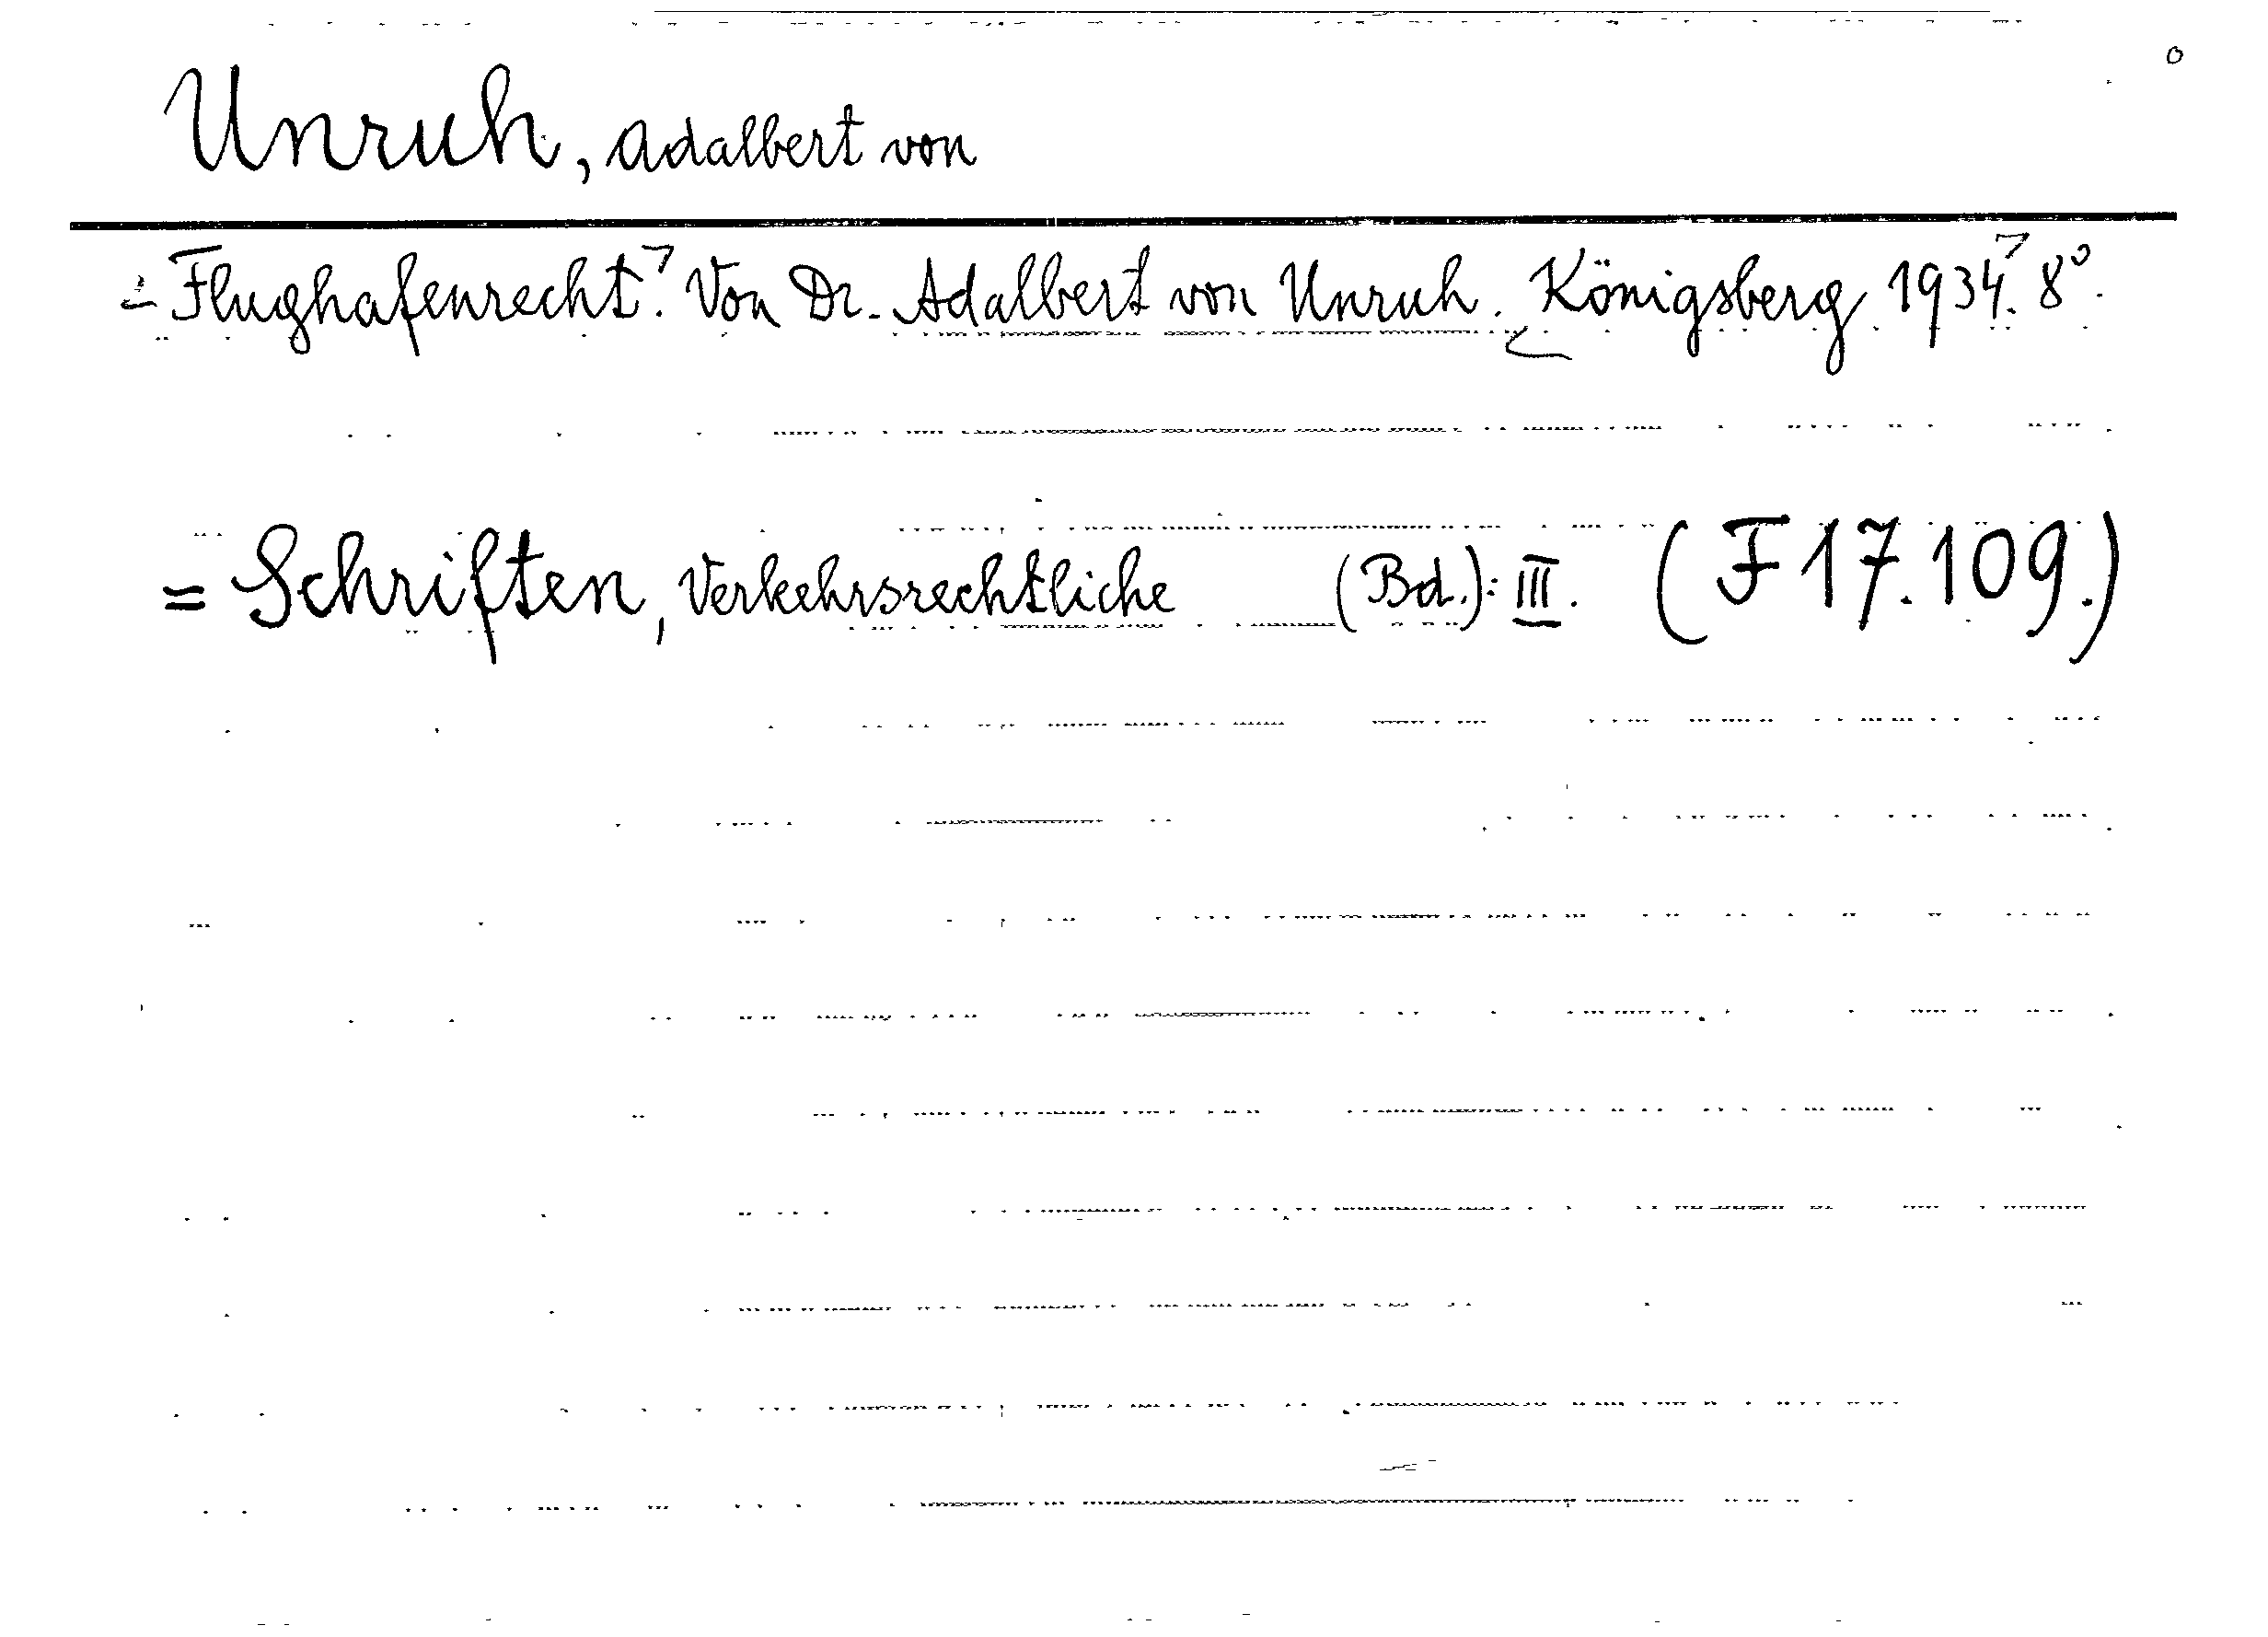 Unruh, Adalbert von
Flughafenrecht. Von Dr. Adalbert von Unruh. Königsberg 1934. 8°.
= Schriften, Verkehrsrechtliche (Bd.): III. (F 17.109.)